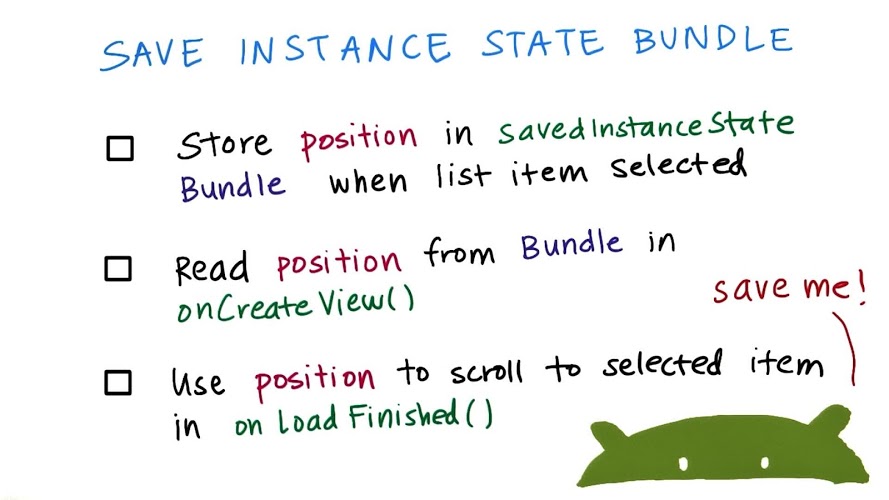 SAVE INSTANCE STATE BUNDLE
Store position in savedInstanceState
Bundle when list item selected
Read position from Bundle in
onCreateView()
save me!
Use position to scroll to selected item
in onLoadFinished()